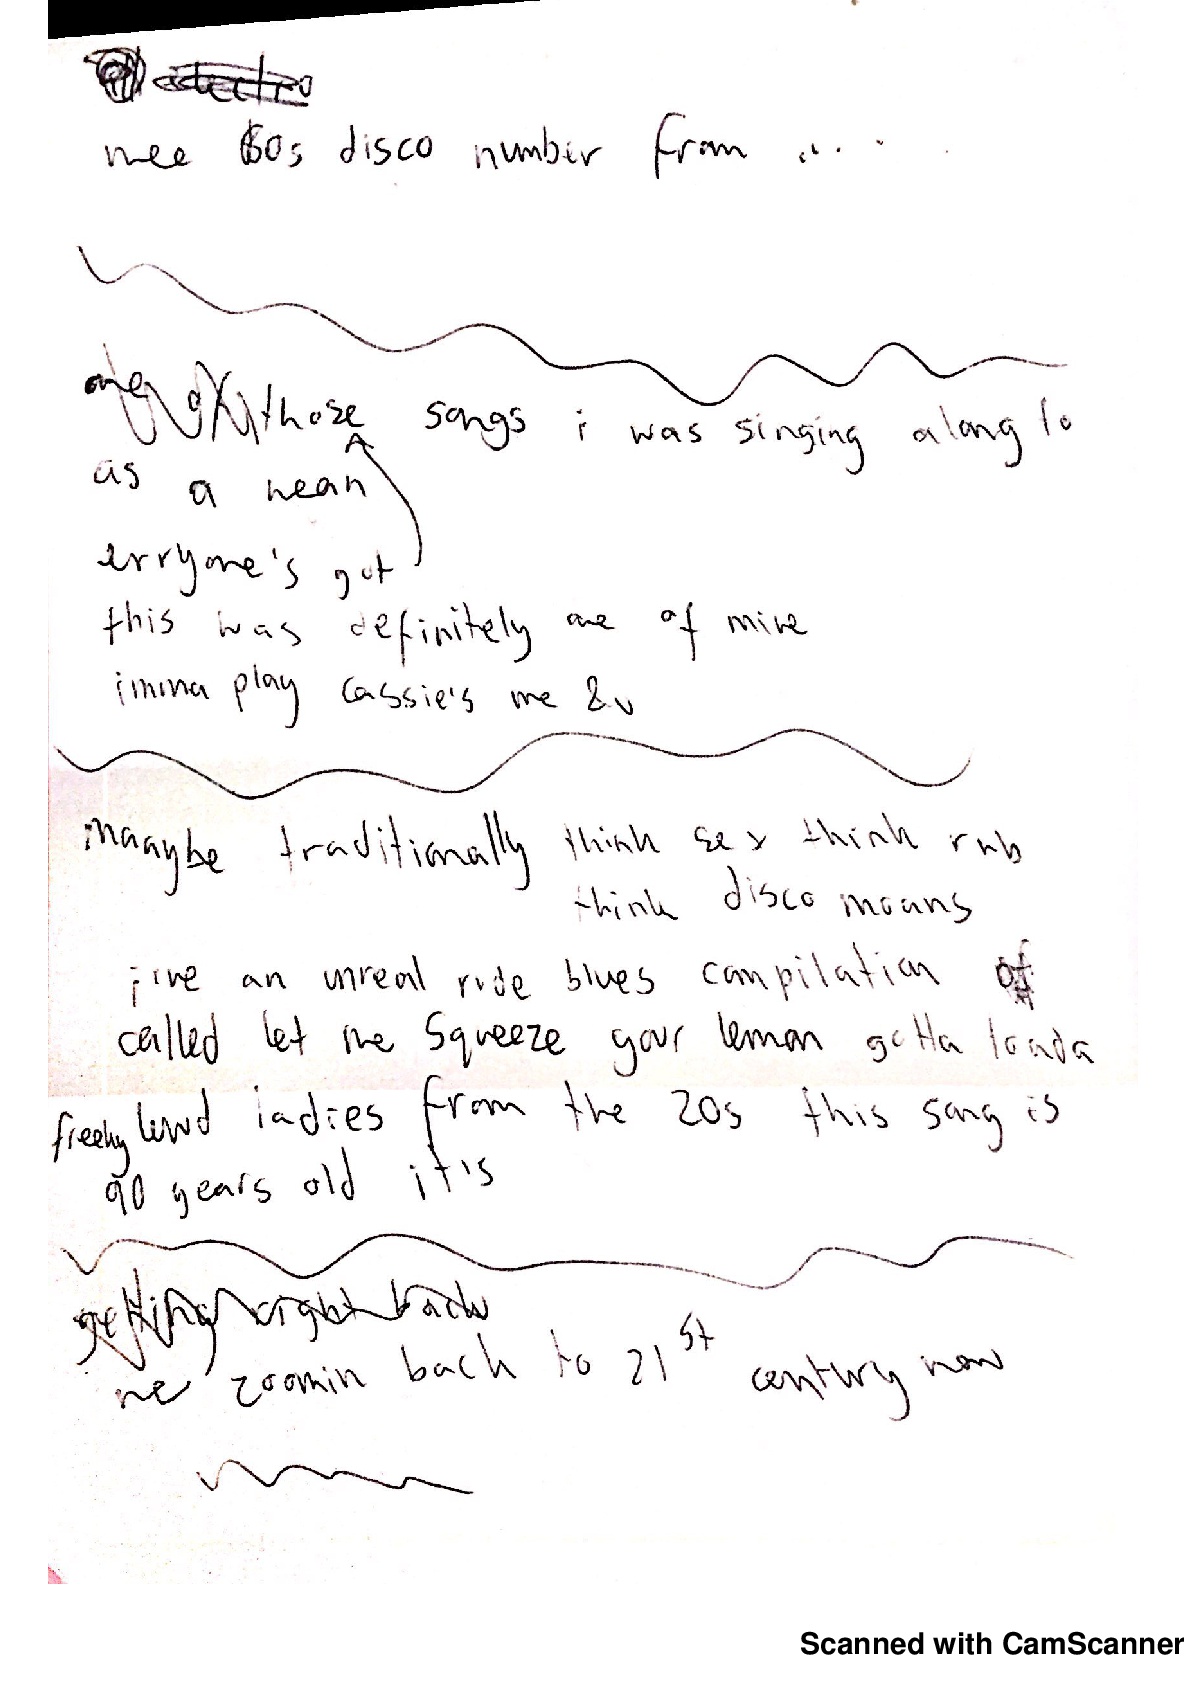 electro
nee 80s disco number from .....
one of those songs i was singing along to
as a wean
erryone's got
this was definitely one of mine
imma play cassie's me & u
maaybe traditionally think sex think rnb
think disco moans
i've an unreal rude blues compilation of
called let me squeeze your lemon gotta loada
freeky lewd ladies from the 20s this song is
90 years old it's
getting right back
ne zoomin back to 21st century now
Scanned with CamScanner